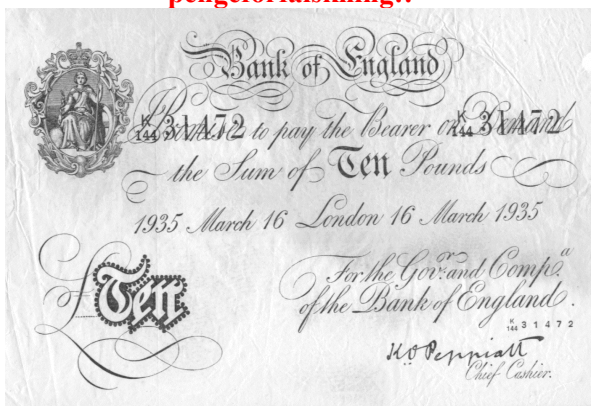 pengeforfalskning!!
Bank of England
K
144 31472 K
144 31472
Promise to pay the Bearer on Demand
the Sum of Ten Pounds
1935 March 16 London 16 March 1935
For the Gov.r and Comp.a
of the Bank of England.
£ Ten
K
144 31472
K.O. Peppiatt
Chief Cashier.